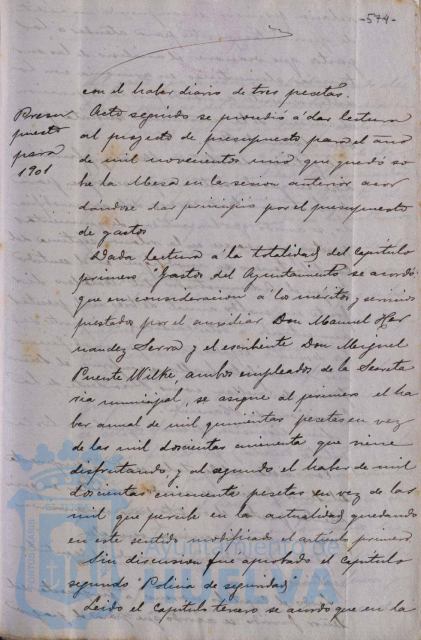 -574-
con el haber diario de tres pesetas.
Presu
puesto
para
1901
Acto seguido se procedió a dar lectura
al proyecto de presupuesto para el año
de mil novecientos uno que quedó so
bre la Mesa en la sesion anterior acor
dándose dar principio por el presupuesto
de gastos
Dada lectura a la totalidad del Capitulo
primero "Gastos del Ayuntamiento se acordó
que en consideracion a los méritos y servicios
prestados por el auxiliar Don Manuel Her
nandez Serra y el escribiente Don Miguel
Puente Wilke, ambos empleados de la Secreta
ria municipal, se asigne al primero el ha
ber anual de mil quinientas pesetas en vez
de las mil doscientas cincuenta que viene
disfrutando y al segundo el haber de mil
doscientas cincuenta pesetas en vez de las
mil que percibe en la actualidad, quedando
en este sentido modificado el articulo primero
Sin discusion fue aprobado el capitulo
segundo "Policia de seguridad"
Leido el Capitulo tercero se acordó que en la
Ayuntamiento de
HUELVA